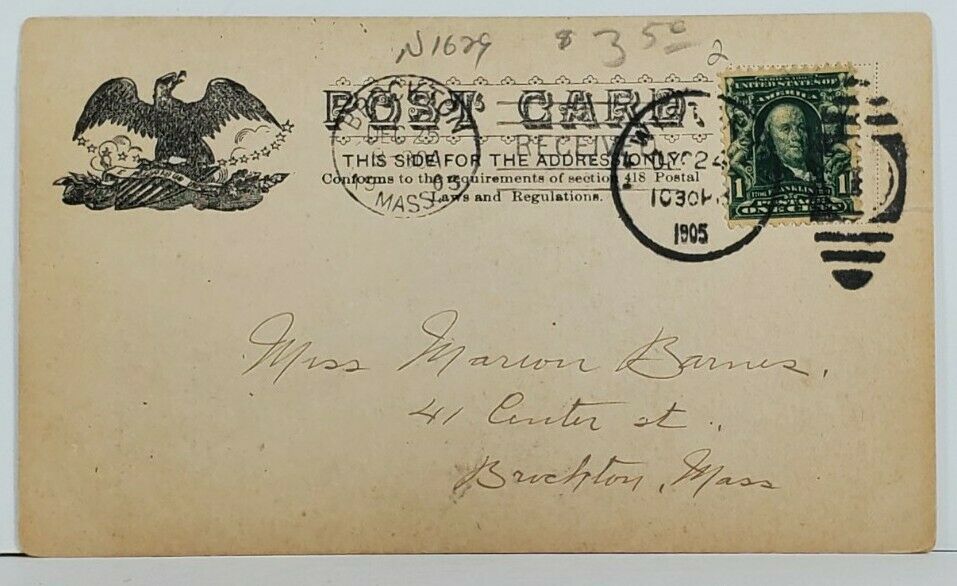 N1629 $3.50 2
POST CARD
THIS SIDE FOR THE ADDRESS ONLY.
Conforms to the requirements of section 418 Postal
Laws and Regulations.
BROCKTON
DEC 25
MASS
RECEIVED
DEC 24
1030P
1905
SERIES 1902
UNITED STATES OF
AMERICA
1 FRANKLIN 1
ONE CENT
Miss Marion Barnes,
41 Center st.,
Brockton, Mass